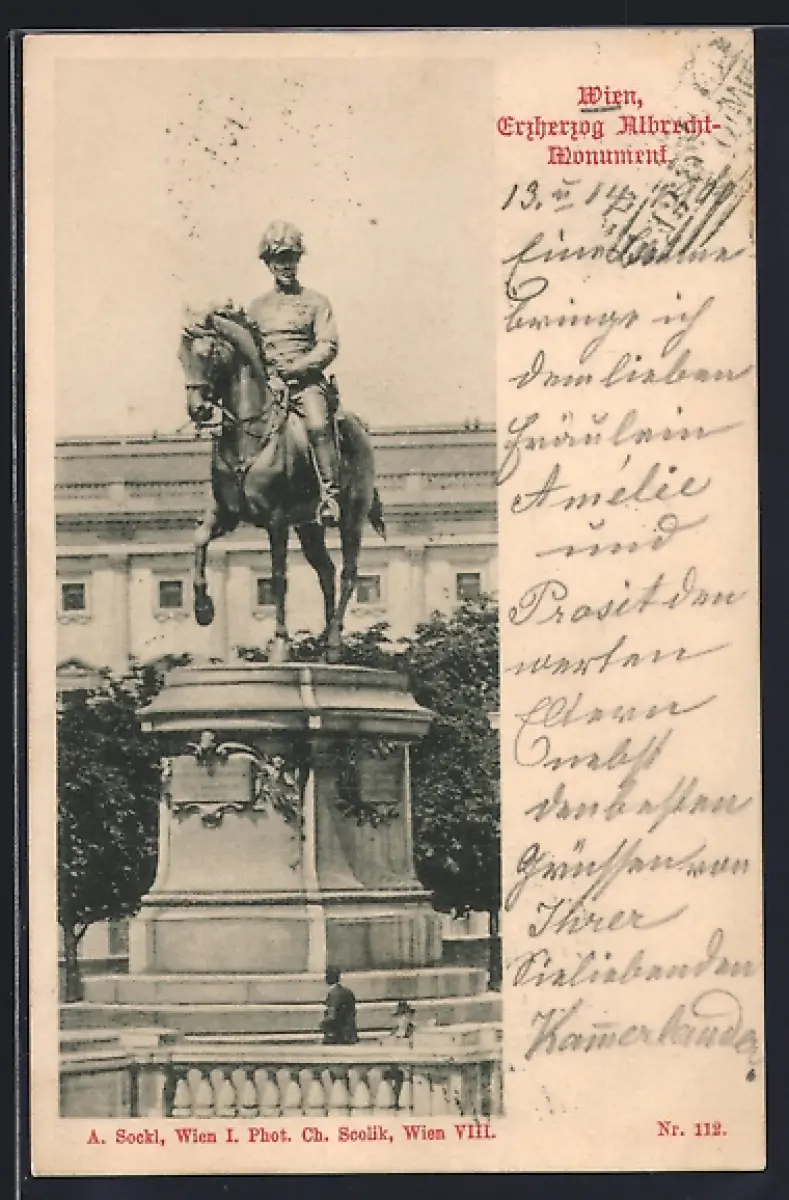 Wien,
Erzherzog Albrecht-
Monument.
13. V 14
Eine
bringe ich
dem lieben
Fräulein
Amélie
und
Prosit den
werten
Eltern
nebst
den besten
Grüssen von
Ihrer
Sie liebenden
A. Sockl, Wien I. Phot. Ch. Scolik, Wien VIII.
Nr. 112.